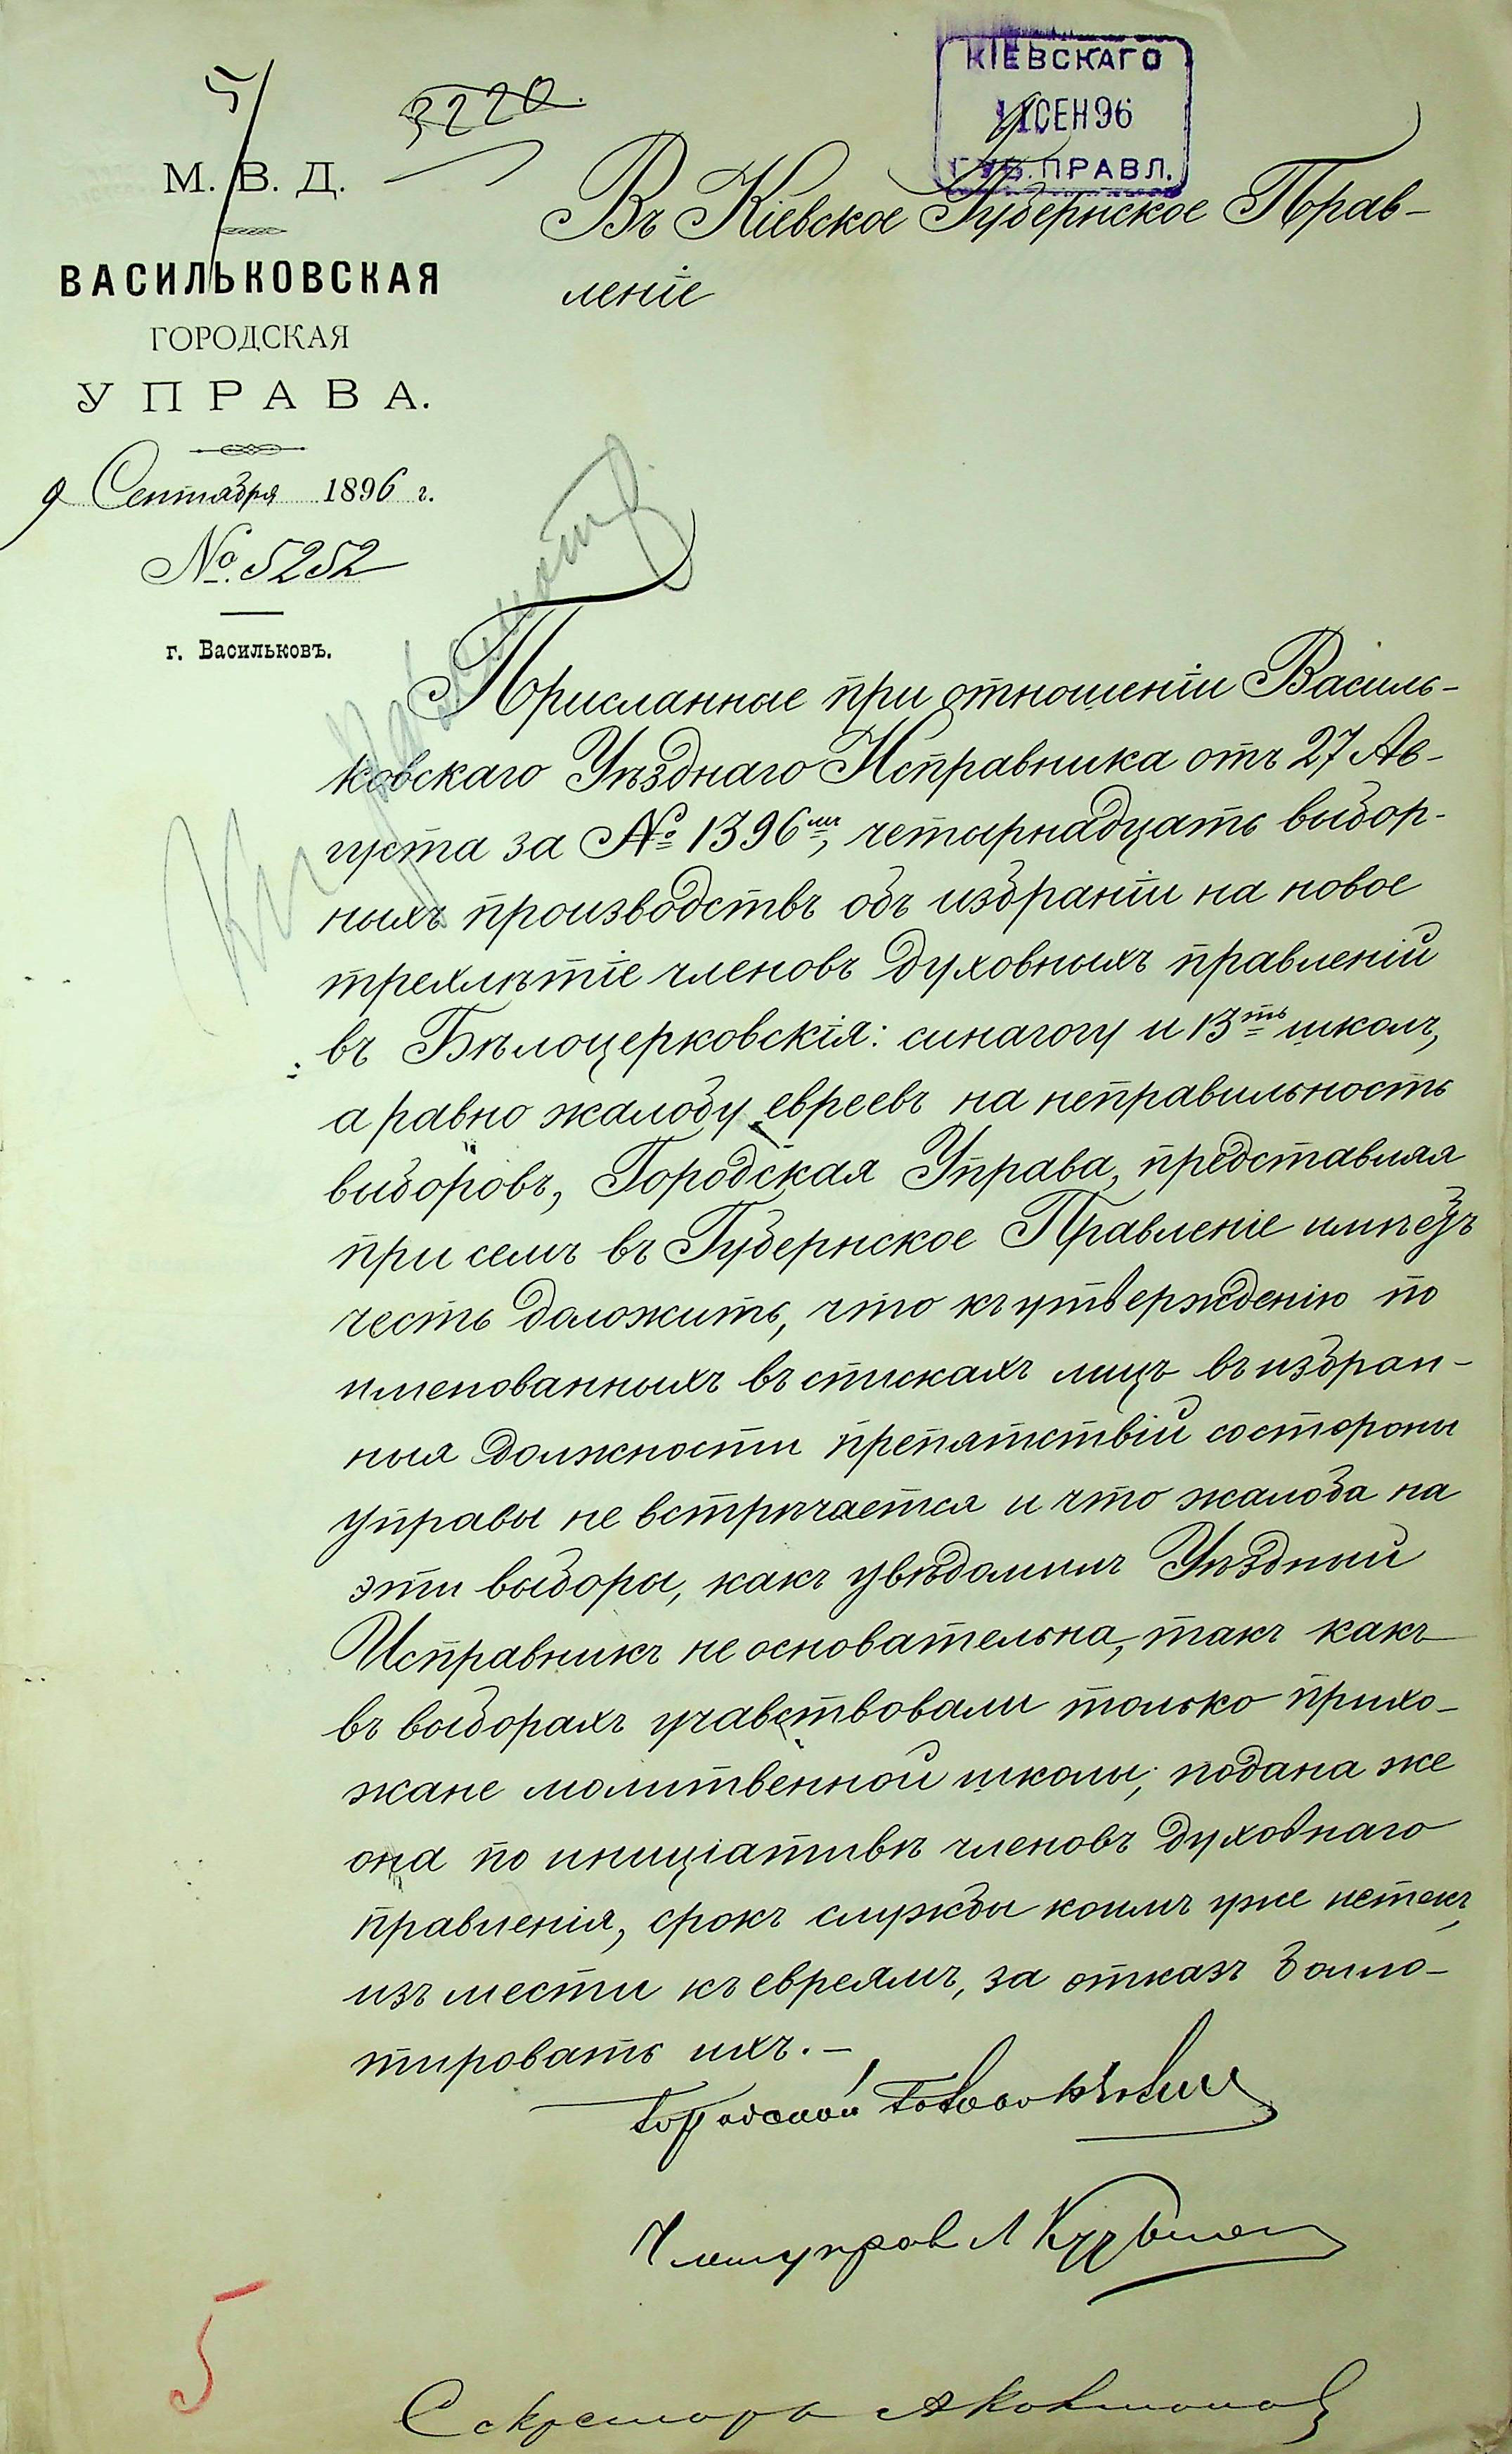 КІЕВСКАГО
11 СЕН 96
ГУБ. ПРАВЛ.
5
3220.
М. В. Д.
ВАСИЛЬКОВСКАЯ
ГОРОДСКАЯ
УПРАВА.
9 Сентября 1896 г.
№ 5252
г. Васильковъ.
Въ Кіевское Губернское Прав-
леніе
Присланные при отношеніи Василь-
ковскаго Уѣзднаго Исправника отъ 27 Ав-
густа за № 1396мъ, четырнадцать выбор-
ныхъ производствъ объ избраніи на новое
трехлѣтіе членовъ духовныхъ правленій
въ Бѣлоцерковскія: синагогу и 13ть школъ,
а равно жалобу евреевъ на неправильность
выборовъ, Городская Управа, представляя
при семъ въ Губернское Правленіе имѣетъ
честь доложить, что къ утвержденію по
именованныхъ въ спискахъ лицъ въ избран-
ныя должности препятствій со стороны
управы не встрѣчается и что жалоба на
эти выборы, какъ увѣдомилъ Уѣздный
Исправникъ не основательна, такъ какъ
въ выборахъ учавствовали только прихо-
жане молитвенной школы; подана же
она по иниціативѣ членовъ духовнаго
правленія, срокъ службы коимъ уже истекъ,
изъ мести къ евреямъ, за отказъ балло-
тировать ихъ. –
Городской Голова
Секретарь
5